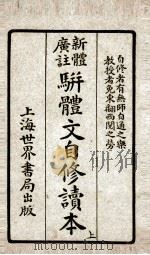 自修者有無師自通之樂
教授者免東翻西閱之勞
新體
廣註
駢體文自修讀本
上
上海世界書局出版